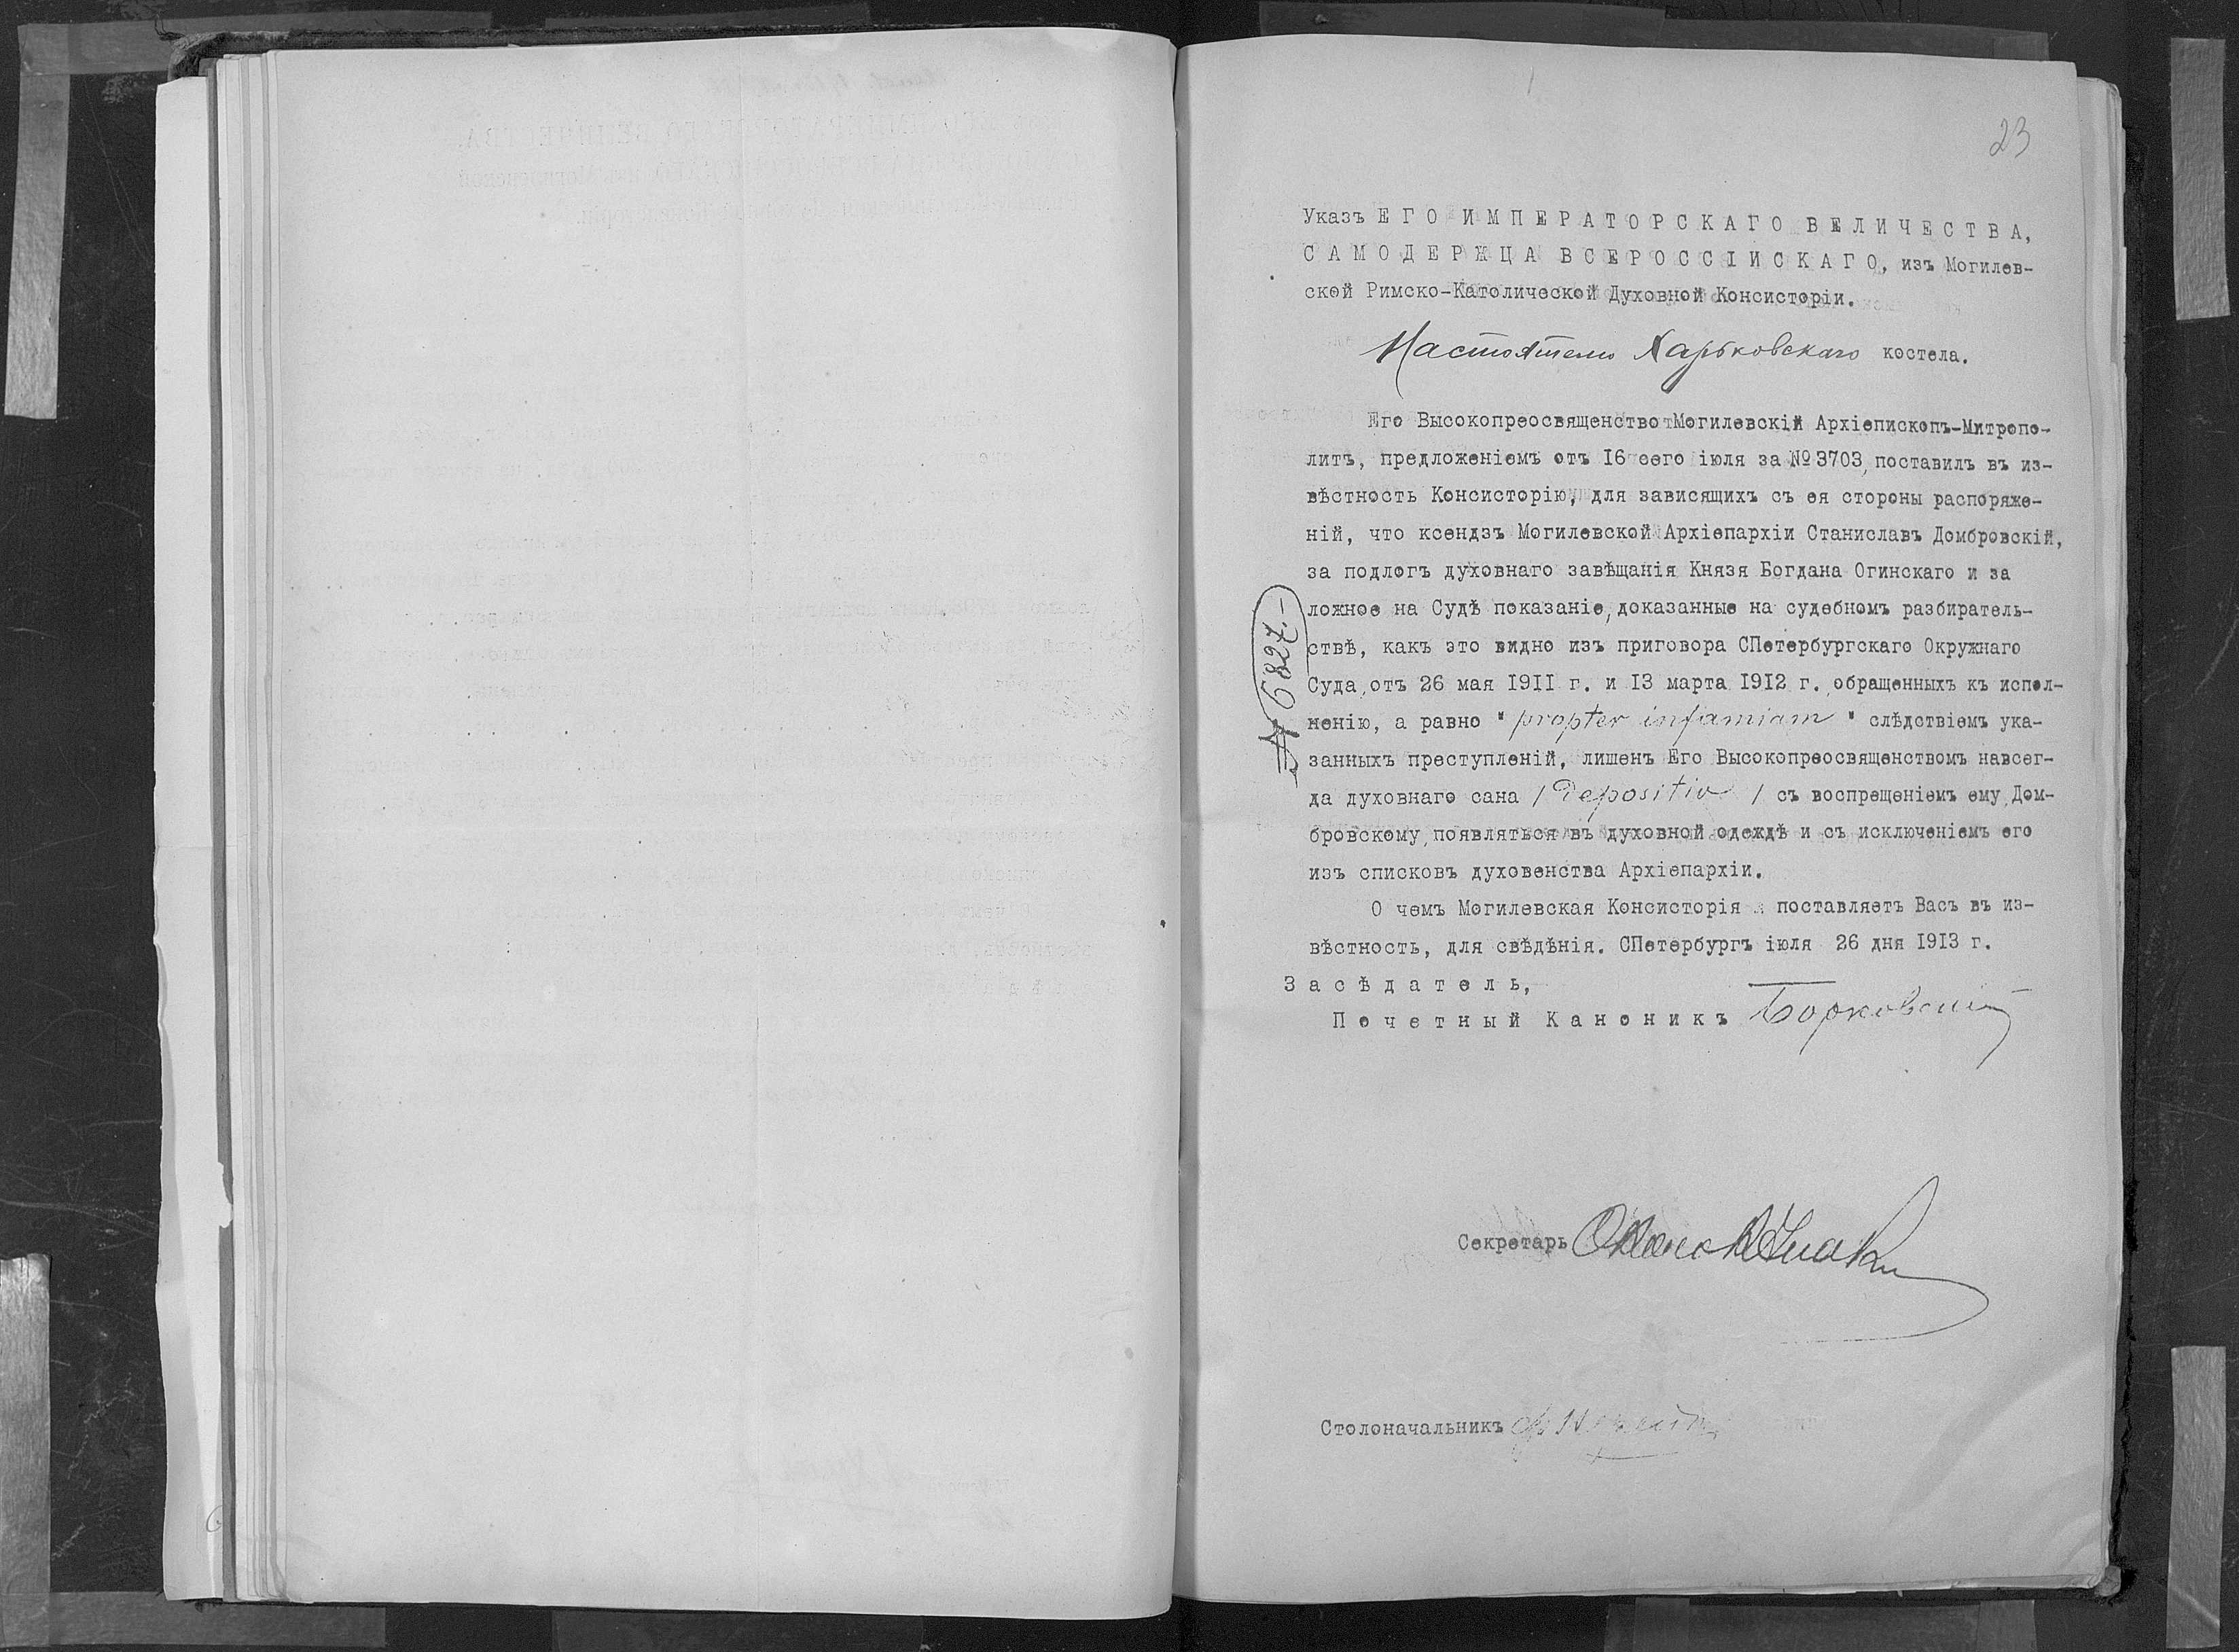 23
Указъ ЕГО ИМПЕРАТОРСКАГО ВЕЛИЧЕСТВА,
САМОДЕРЖЦА ВСЕРОССІЙСКАГО, изъ Могилев-
ской Римско-Католической Духовной Консисторіи.
Настоятелю Харьковскаго костела.
Его Высокопреосвященство Могилевскій Архіепископъ-Митропо-
литъ, предложеніемъ отъ 16 сего іюля за № 3703, поставилъ въ из-
вѣстность Консисторію, для зависящихъ съ ея стороны распоряже-
ній, что ксендзъ Могилевской Архіепархіи Станиславъ Домбровскій,
за подлогъ духовнаго завѣщанія Князя Богдана Огинскаго и за
ложное на Судѣ показаніе, доказанные на судебномъ разбиратель-
ствѣ, какъ это видно изъ приговора СПетербургскаго Окружнаго
Суда, отъ 26 мая 1911 г. и 13 марта 1912 г., обращенныхъ къ испол-
ненію, а равно "propter infamiam" слѣдствіемъ ука-
занныхъ преступленій, лишенъ Его Высокопреосвященствомъ навсег-
да духовнаго сана /Depositio/ съ воспрещеніемъ ему, Дом-
бровскому, появляться въ духовной одеждѣ и съ исключеніемъ его
изъ списковъ духовенства Архіепархіи.
О чемъ Могилевская Консисторія поставляетъ Васъ въ из-
вѣстность, для свѣдѣнія. СПетербургъ іюля 26 дня 1913 г.
Засѣдатель,
Почетный Каноникъ Борковскій
№ 6827.-
Секретарь
Столоначальникъ